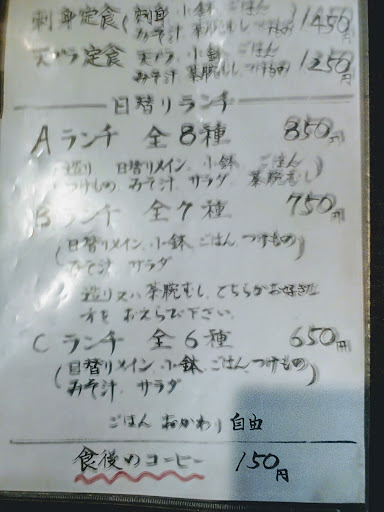 刺身定食(刺身、小鉢、ごはん
みそ汁、茶腕むし、つけもの) 1450円
天プラ定食(天プラ、小鉢、ごはん
みそ汁、茶腕むし、つけもの) 1250円
日替りランチ
Aランチ 全8種 850円
(造り 日替りメイン、小鉢、ごはん
つけもの、みそ汁、サラダ、茶腕むし)
Bランチ 全7種 750円
(日替りメイン、小鉢、ごはん、つけもの
みそ汁 サラダ)
造り又ハ茶腕むし、どちらかお好きな
方を おえらび下さい。
Cランチ 全6種 650円
(日替りメイン、小鉢、ごはん、つけもの
みそ汁、サラダ)
ごはん おかわり 自由
食後のコーヒー 150円